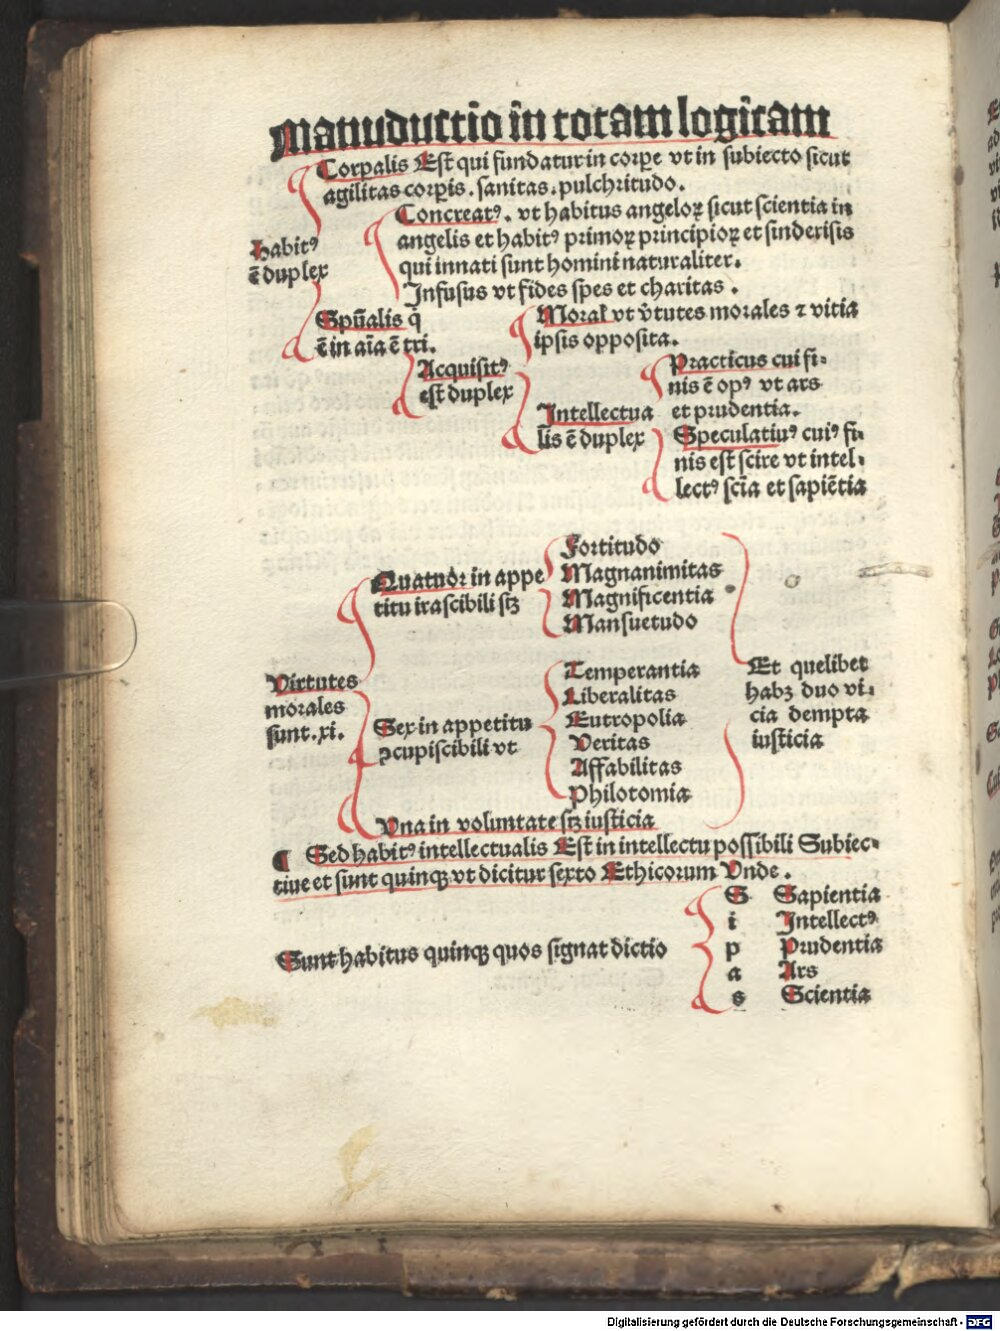 Manuductiō in totam logicam
Corpalis Est qui fundatur in corpe vt in subiecto sicut
agilitas corpis. sanitas. pulchritudo.
Concreatꝰ. vt habitus angeloꝝ sicut scientia in
angelis et habitꝰ primoꝝ principioꝝ et sinderisis
qui innati sunt homini naturaliter.
Infusus vt fides spes et charitas.
habitꝰ
ē duplex
Spūalis q̄
ē in aīa ē tri.
Moral' vt v̄tutes morales ⁊ vitia
ipsis opposita.
Acquisitꝰ
est duplex
Practicus cui fi-
nis ē opꝰ vt ars
et prudentia.
Intellectua
lis ē duplex
Speculatiuꝰ cuiꝰ fi-
nis est scire vt intel-
lectꝰ scīa et sapiētia
Quatuor in appe
titu irascibili sꝫ
Fortitudo
Magnanimitas
Magnificentia
Mansuetudo
Virtutes
morales
sunt .xi.
Sex in appetitu
ꝯcupiscibili vt
Temperantia
Liberalitas
Eutropolia
Veritas
Affabilitas
Philotomia
Et quelibet
habꝫ duo vi-
cia dempta
iusticia
Vna in voluntate sꝫ iusticia
¶ Sed habitꝰ intellectualis Est in intellectu possibili Subiec-
tiue et sunt quinqꝫ vt dicitur sexto Ethicorum Vnde.
Sunt habitus quinqꝫ quos signat dictio
S Sapientia
i Intellectꝰ
p Prudentia
a Ars
s Scientia
Digitalisierung gefördert durch die Deutsche Forschungsgemeinschaft - DFG